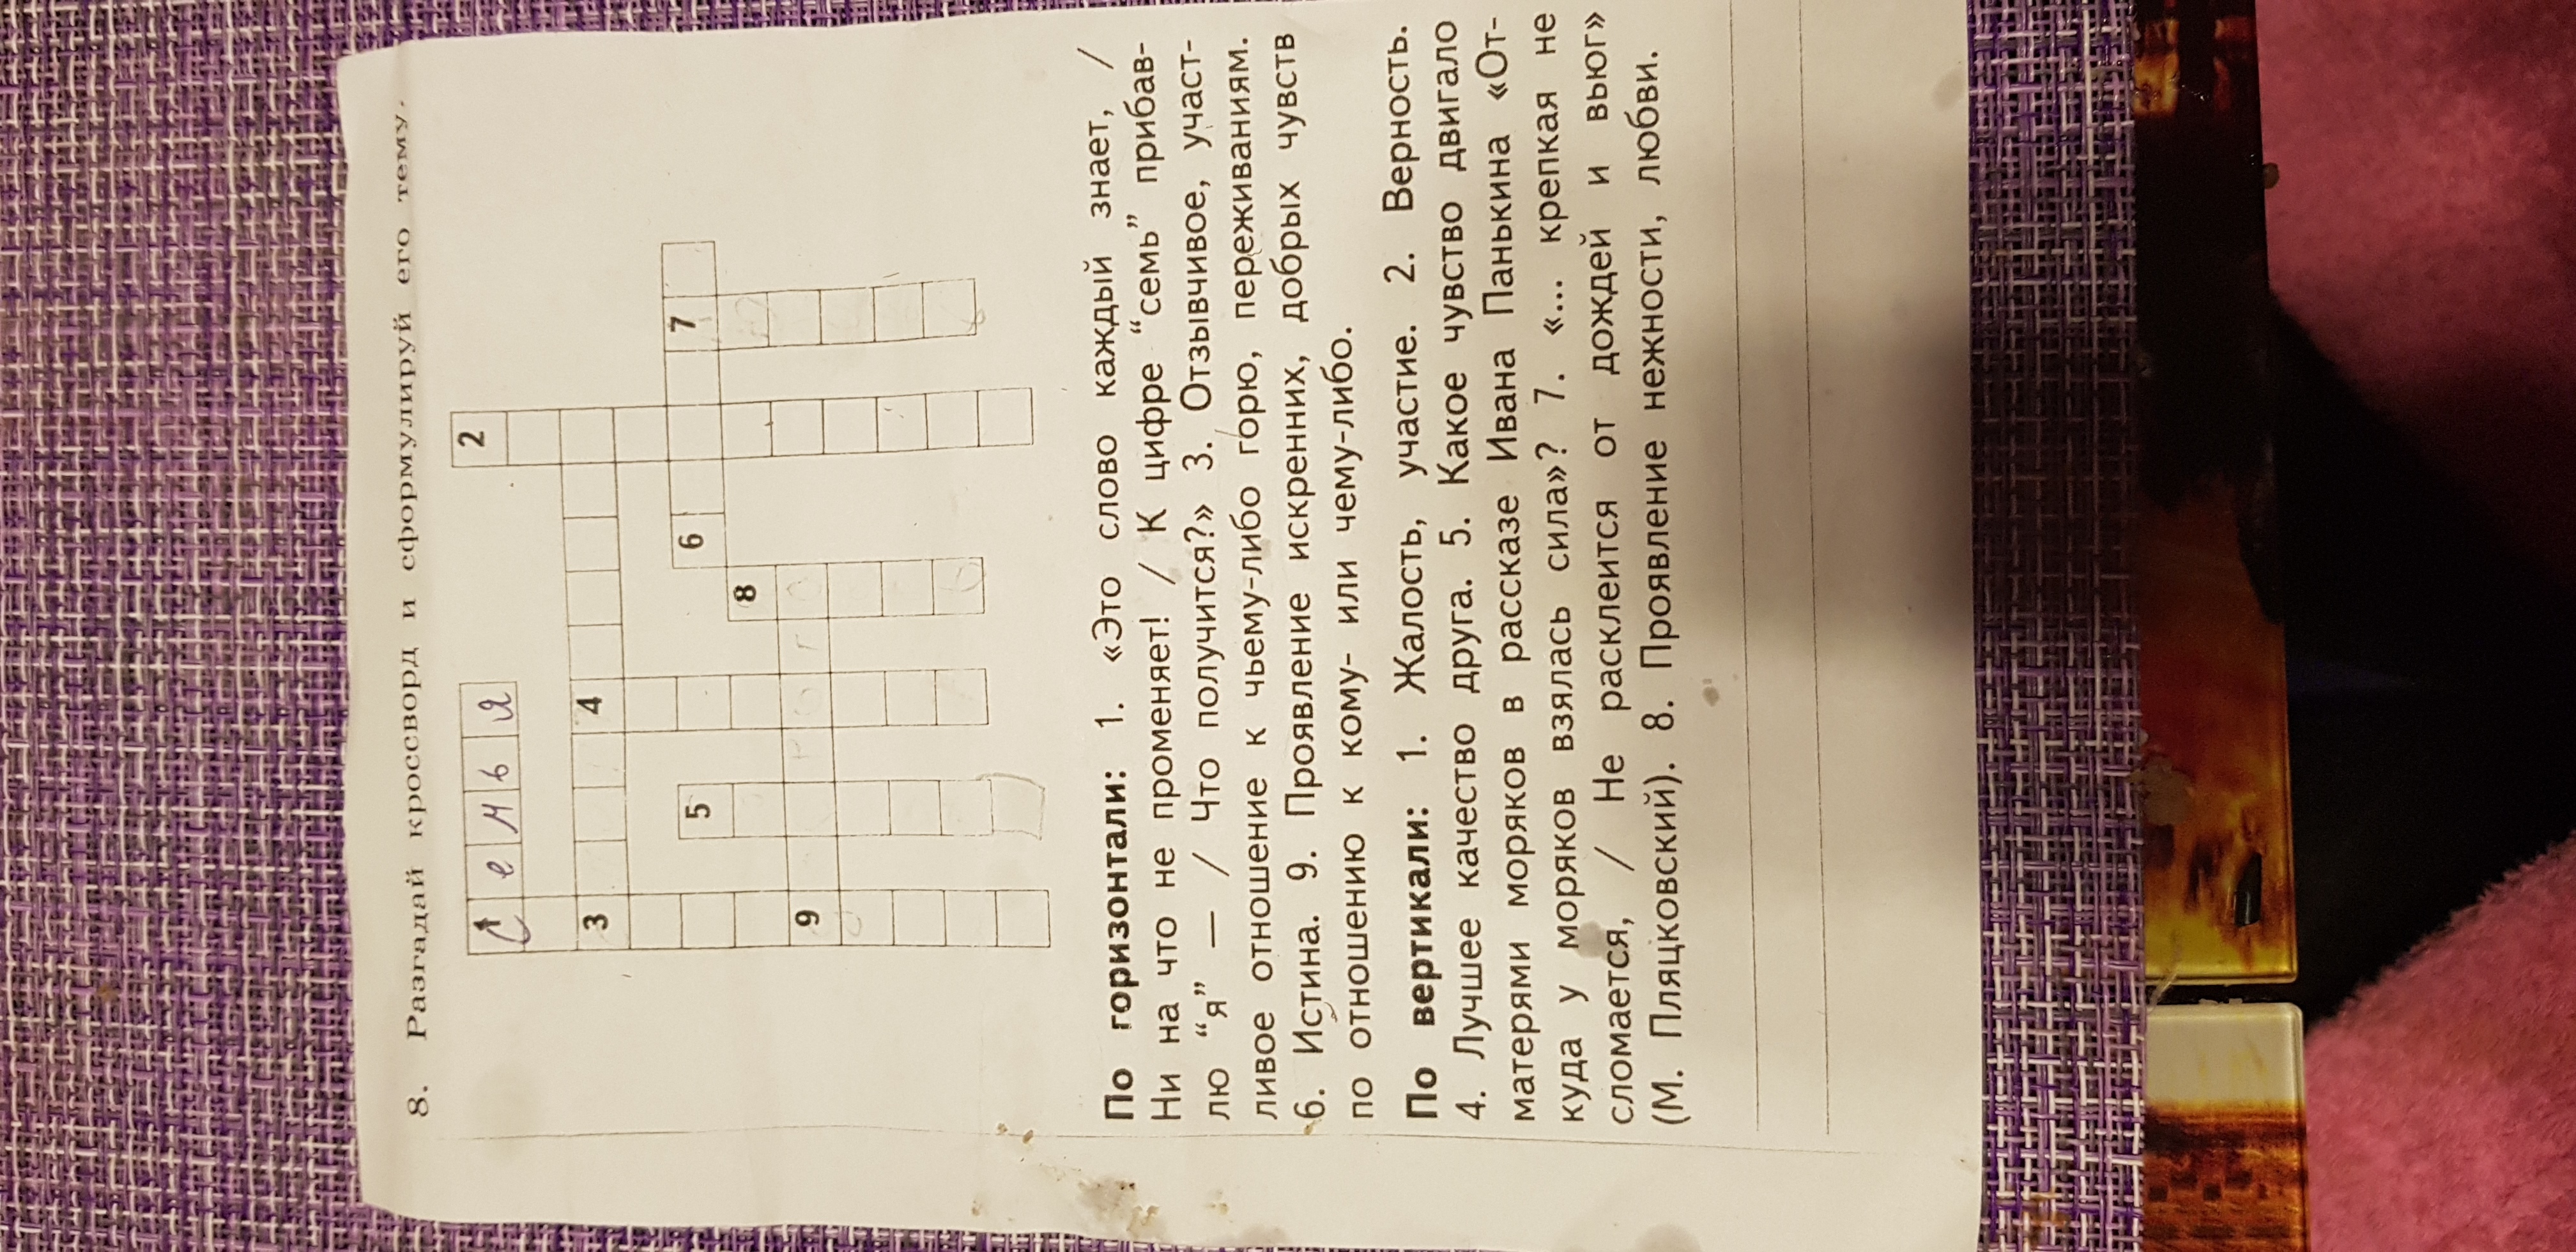 8. Разгадай кроссворд и сформулируй его тему.
2
С е м ь я
3 4
5 6 7
8
9
По горизонтали: 1. «Это слово каждый знает, /
Ни на что не променяет! / К цифре “семь” прибав-
лю “я” — / Что получится?» 3. Отзывчивое, участ-
ливое отношение к чьему-либо горю, переживаниям.
6. Истина. 9. Проявление искренних, добрых чувств
по отношению к кому- или чему-либо.
По вертикали: 1. Жалость, участие. 2. Верность.
4. Лучшее качество друга. 5. Какое чувство двигало
матерями моряков в рассказе Ивана Панькина «От-
куда у моряков взялась сила»? 7. «... крепкая не
сломается, / Не расклеится от дождей и вьюг»
(М. Пляцковский). 8. Проявление нежности, любви.